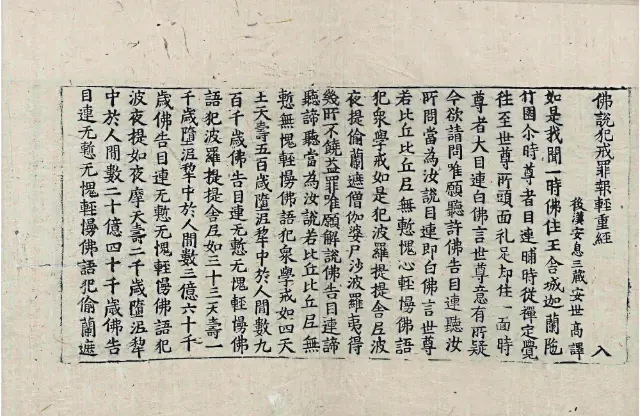 佛說犯戒罪報輕重經 入
後漢安息三藏安世高譯
如是我聞一時佛住王舍城迦蘭陁
竹園尒時尊者目連晡時從禪定覺
往至世尊所頭面礼足却住一面時
尊者大目連白佛言世尊意有所疑
今欲請問唯願聽許佛告目連聽汝
所問當為汝說目連即白佛言世尊
若比丘比丘尼無慙愧心輕慢佛語
犯衆學戒如是犯波羅提提舍尼波
夜提偷蘭遮僧伽婆尸沙波羅夷得
幾所不饒益罪唯願解說佛告目連諦
聽諦聽當為汝說若比丘比丘尼無
慙無愧輕慢佛語犯衆學戒如四天
王天壽五百歲墮泥犁中於人間數九
百千歲佛告目連无慙无愧輕慢佛
語犯波羅提提舍尼如三十三天壽一
千歲墮泥犁中於人間數三億六十千
歲佛告目連无慙无愧輕慢佛語犯
波夜提如夜摩天壽二千歲墮泥犁
中於人間數二十億四十千歲佛告
目連无慙无愧輕慢佛語犯偷蘭遮